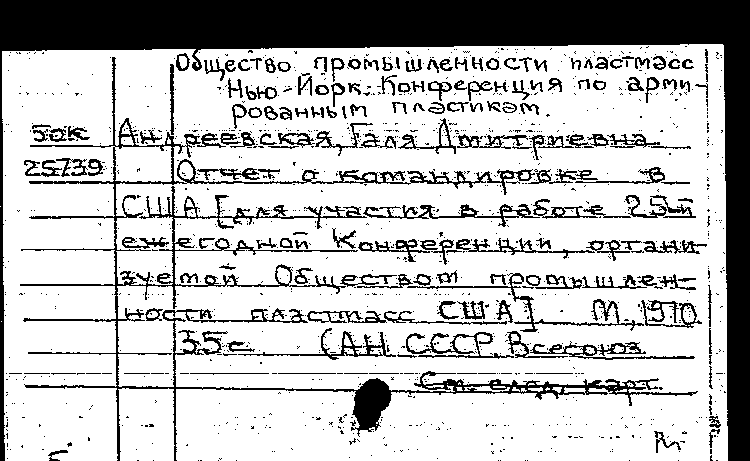 Общество промышленности пластмасс
Нью-Йорк. Конференция по арми-
рованным пластикам.
Андреевская, Галя Дмитриевна
25739 Отчет о командировке в
США [для участия в работе 25-й
ежегодной Конференции, органи-
зуемой Обществом промышлен-
ности пластмасс США]. М., 1970
35 с. (АН СССР. Всесоюз
См. след. карт.